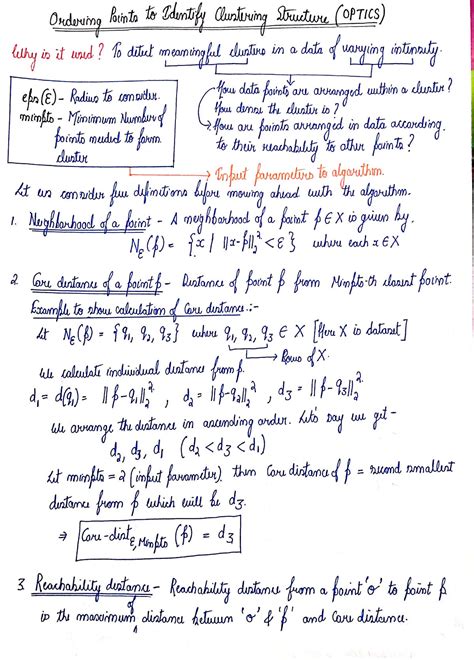 Ordering Points to Identify Clustering Structure (OPTICS)
Why is it used? To detect meaningful clusters in a data of varying intensity.
How data points are arranged within a cluster?
How dense the cluster is?
How are points arranged in data according
to their reachability to other points?
eps (ε) - Radius to consider.
minpts - Minimum Number of
points needed to form
cluster
Input parameters to algorithm.
Let us consider few definitions before moving ahead with the algorithm.
1. Neighborhood of a point - A neighborhood of a point p ∈ X is given by.
N_ε(p) = {x | ||x-p||₂² < ε} where each x ∈ X
2. Core distance of a point p - Distance of point p from Minpts-th closest point.
Example to show calculation of Core distance :-
Let N_ε(p) = {q₁, q₂, q₃} where q₁, q₂, q₃ ∈ X [Here X is dataset]
Rows of X.
We calculate individual distance from p.
d₁ = d(q₁) = ||p-q₁||₂² , d₂ = ||p-q₂||₂² , d₃ = ||p-q₃||₂²
We arrange the distance in ascending order. Let's say we get -
d₂, d₃, d₁ (d₂ < d₃ < d₁)
Let minpts = 2 (input parameter) then Core distance of p = second smallest
distance from p which will be d₃.
⇒ Core-dist_ε,Minpts (p) = d₃
3. Reachability distance - Reachability distance from a point 'o' to point p
is the maximum of distance between 'o' & 'p' and Core distance.